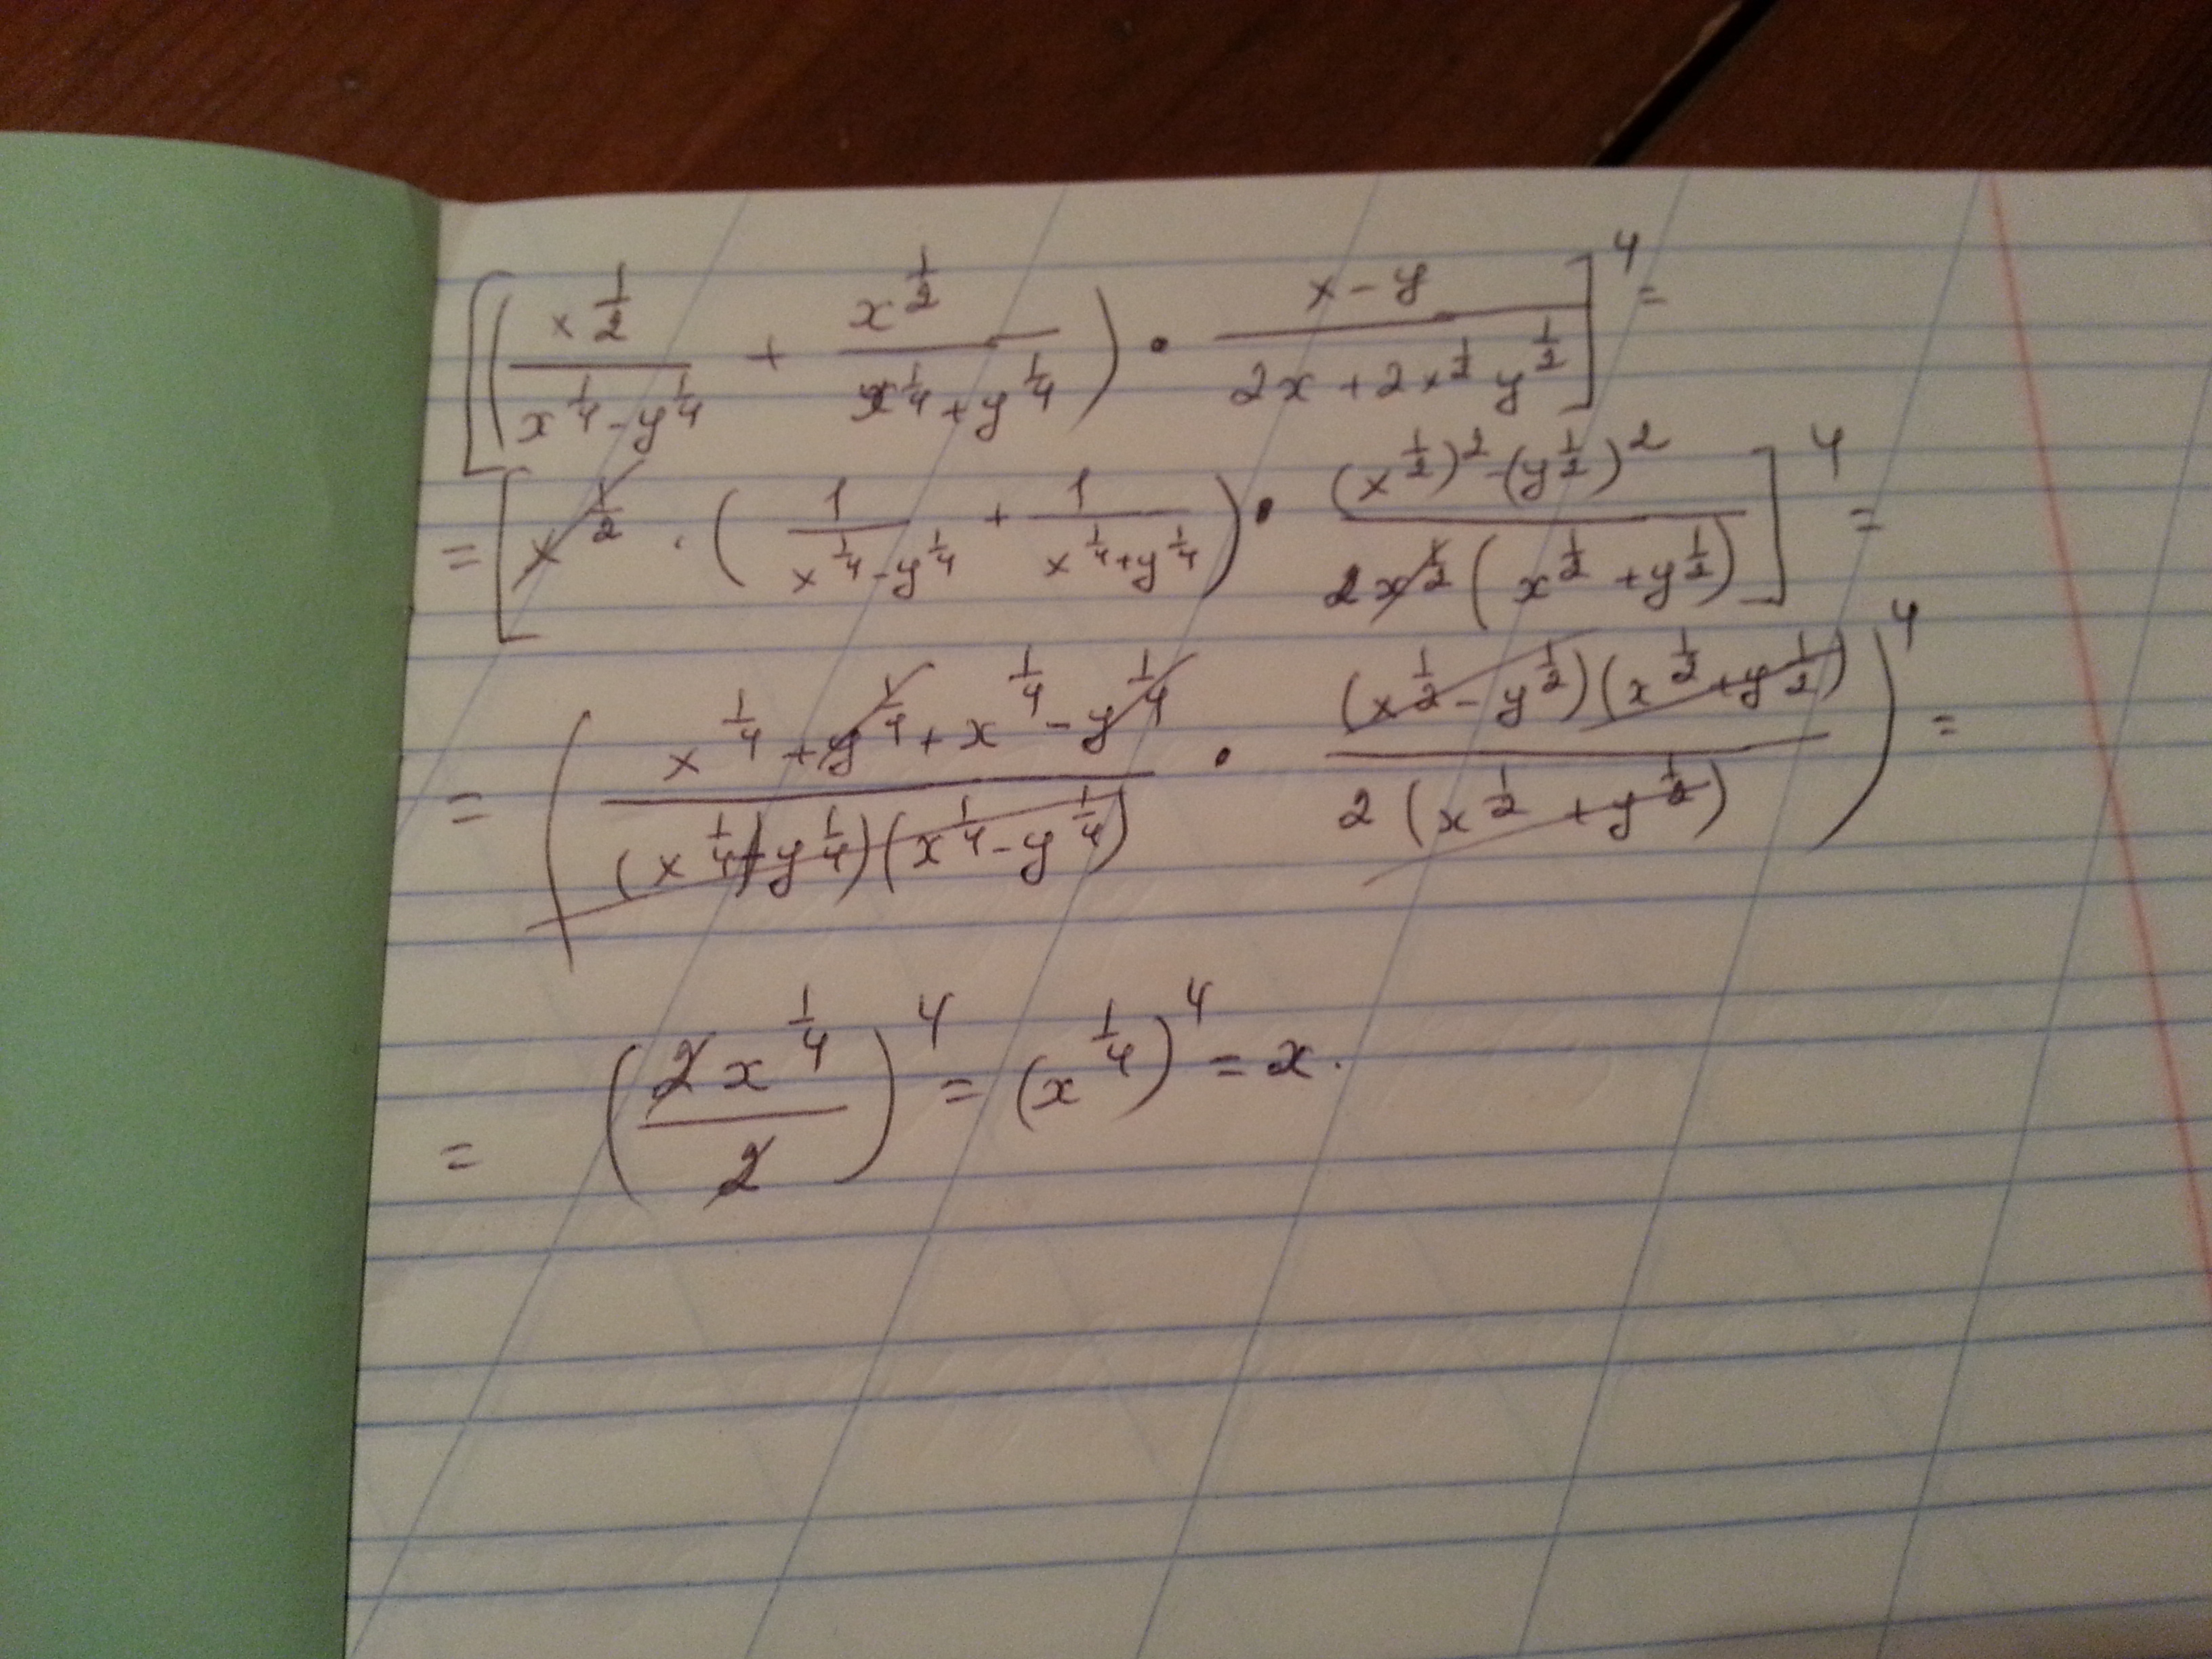 [(x^{1/2}/(x^{1/4} - y^{1/4}) + x^{1/2}/(x^{1/4} + y^{1/4})) · (x - y)/(2x + 2x^{1/2} y^{1/2})]^4 =
= [x^{1/2} · (1/(x^{1/4} - y^{1/4}) + 1/(x^{1/4} + y^{1/4})) · ((x^{1/2})^2 - (y^{1/2})^2)/(2x^{1/2}(x^{1/2} + y^{1/2}))]^4 =
= ((x^{1/4} + y^{1/4} + x^{1/4} - y^{1/4})/((x^{1/4} + y^{1/4})(x^{1/4} - y^{1/4})) · ((x^{1/2} - y^{1/2})(x^{1/2} + y^{1/2}))/(2(x^{1/2} + y^{1/2})))^4 =
= (2x^{1/4}/2)^4 = (x^{1/4})^4 = x.